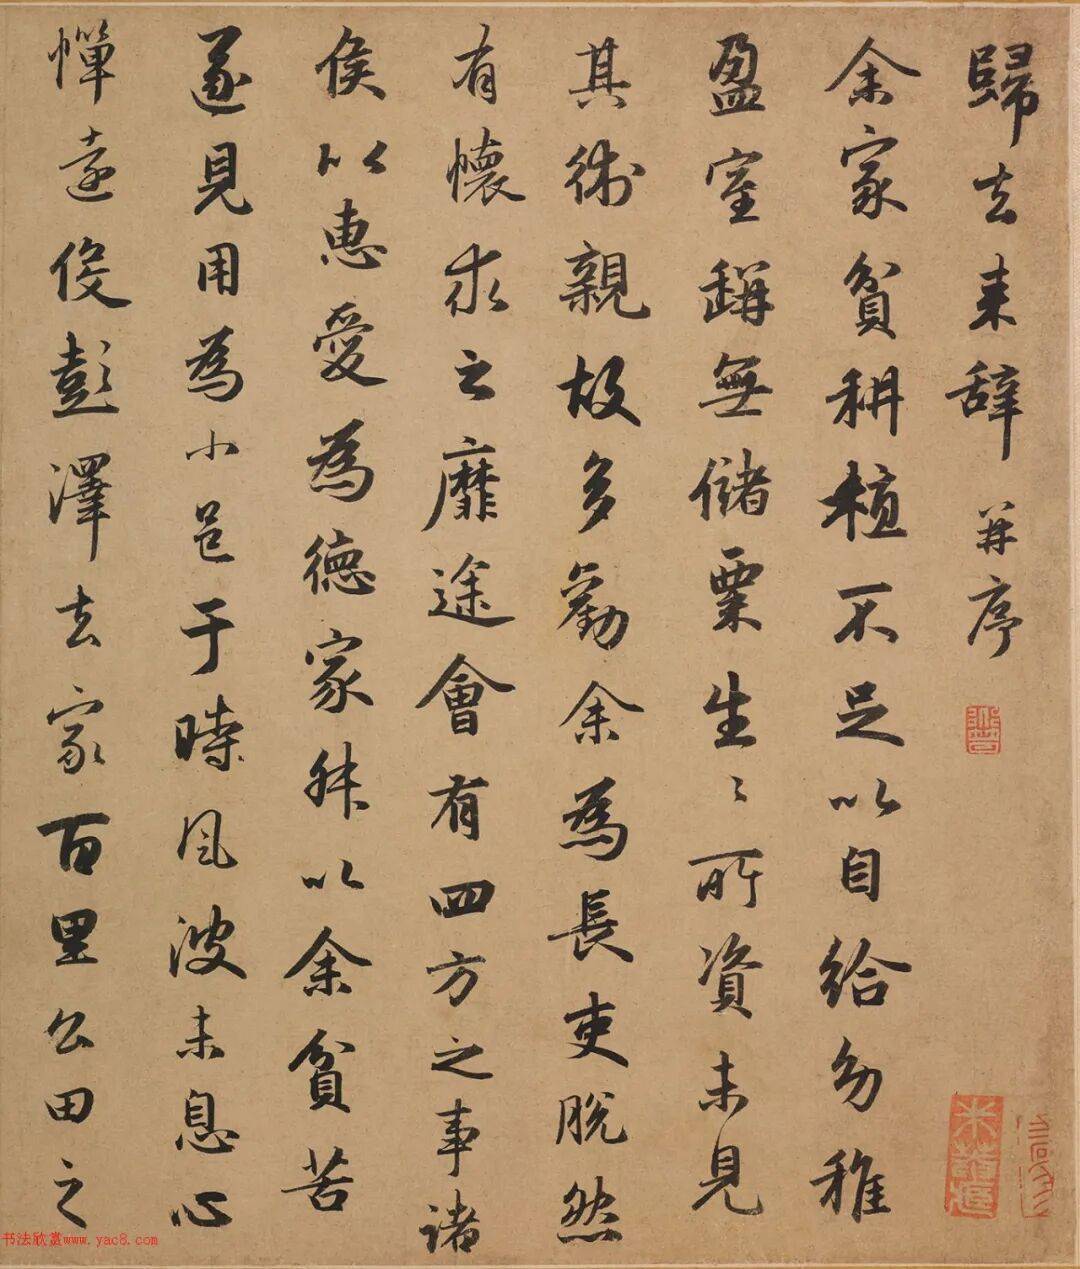 歸去来辞 并序
余家貧耕植不足以自給幼稚
盈室缾無儲粟生〻所資未見
其術親故多勸余為長吏脫然
有懷求之靡途會有四方之事諸
侯以惠愛為德家叔以余貧苦
遂見用為小邑于時風波未息心
憚遠役彭澤去家百里公田之
书法欣赏www.yac8.com